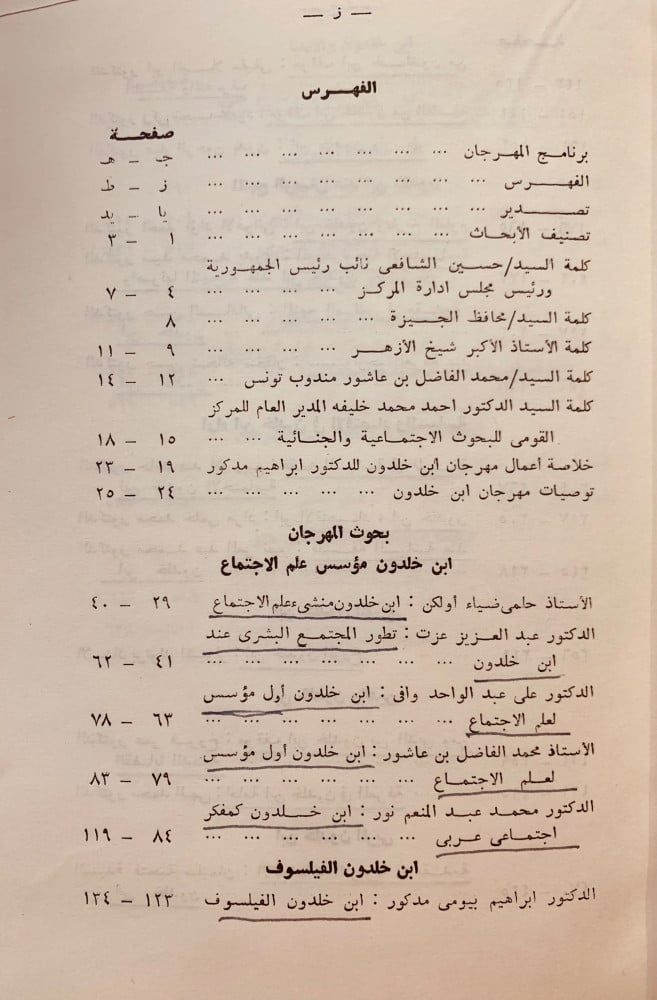 — ز —
الفهـــرس
صفحـــة
برنامج المهرجان ... ... ... ... ... ... ... جـ ــ هـ
الفهرس ... ... ... ... ... ... ... ... ز ــ ط
تصـــــدير ... ... ... ... ... ... ... يا ــ يد
تصنيف الأبحاث ... ... ... ... ... ... ... ١ ــ ٣
كلمة السيد/حسين الشافعى نائب رئيس الجمهورية
ورئيس مجلس ادارة المركز ... ... ... ... ٤ ــ ٧
كلمة السيد/محافظ الجـــيزة ... ... ... ... ... ٨
كلمة الأستاذ الأكبر شيخ الأزهـــر ... ... ... ... ٩ ــ ١١
كلمة السيد/محمد الفاضل بن عاشور مندوب تونس ... ١٢ ــ ١٤
كلمة السيد الدكتور احمد محمد خليفه المدير العام للمركز
القومى للبحوث الاجتماعية والجنائية ... ... ١٥ ــ ١٨
خلاصة أعمال مهرجان ابن خلدون للدكتور ابراهيم مدكور ١٩ ــ ٢٣
توصيات مهرجان ابن خلدون ... ... ... ... ... ٢٤ ــ ٢٥
بحوث المهرجان
ابن خلدون مؤسس علم الاجتماع
الأستاذ حلمى ضياء أولكن : ابن خلدون منشىء علم الاجتماع ٢٩ ــ ٤٠
الدكتور عبد العزيز عزت : تطور المجتمع البشرى عند
ابن خلدون ... ... ... ... ... ... ... ٤١ ــ ٦٢
الدكتور على عبد الواحد وافى : ابن خلدون أول مؤسس
لعلم الاجتماع ... ... ... ... ... ... ... ٦٣ ــ ٧٨
الأستاذ محمد الفاضل بن عاشور : ابن خلدون أول مؤسس
لعـــلم الاجتماع ... ... ... ... ... ... ٧٩ ــ ٨٣
الدكتور محمد عبد المنعم نور : ابن خـــلدون كمفكر
اجتماعى عـــربى ... ... ... ... ... ... ٨٤ ــ ١١٩
ابن خلدون الفيلسوف
الدكتور ابراهيم بيومى مدكور : ابن خلدون الفيلسوف ١٢٣ ــ ١٣٤